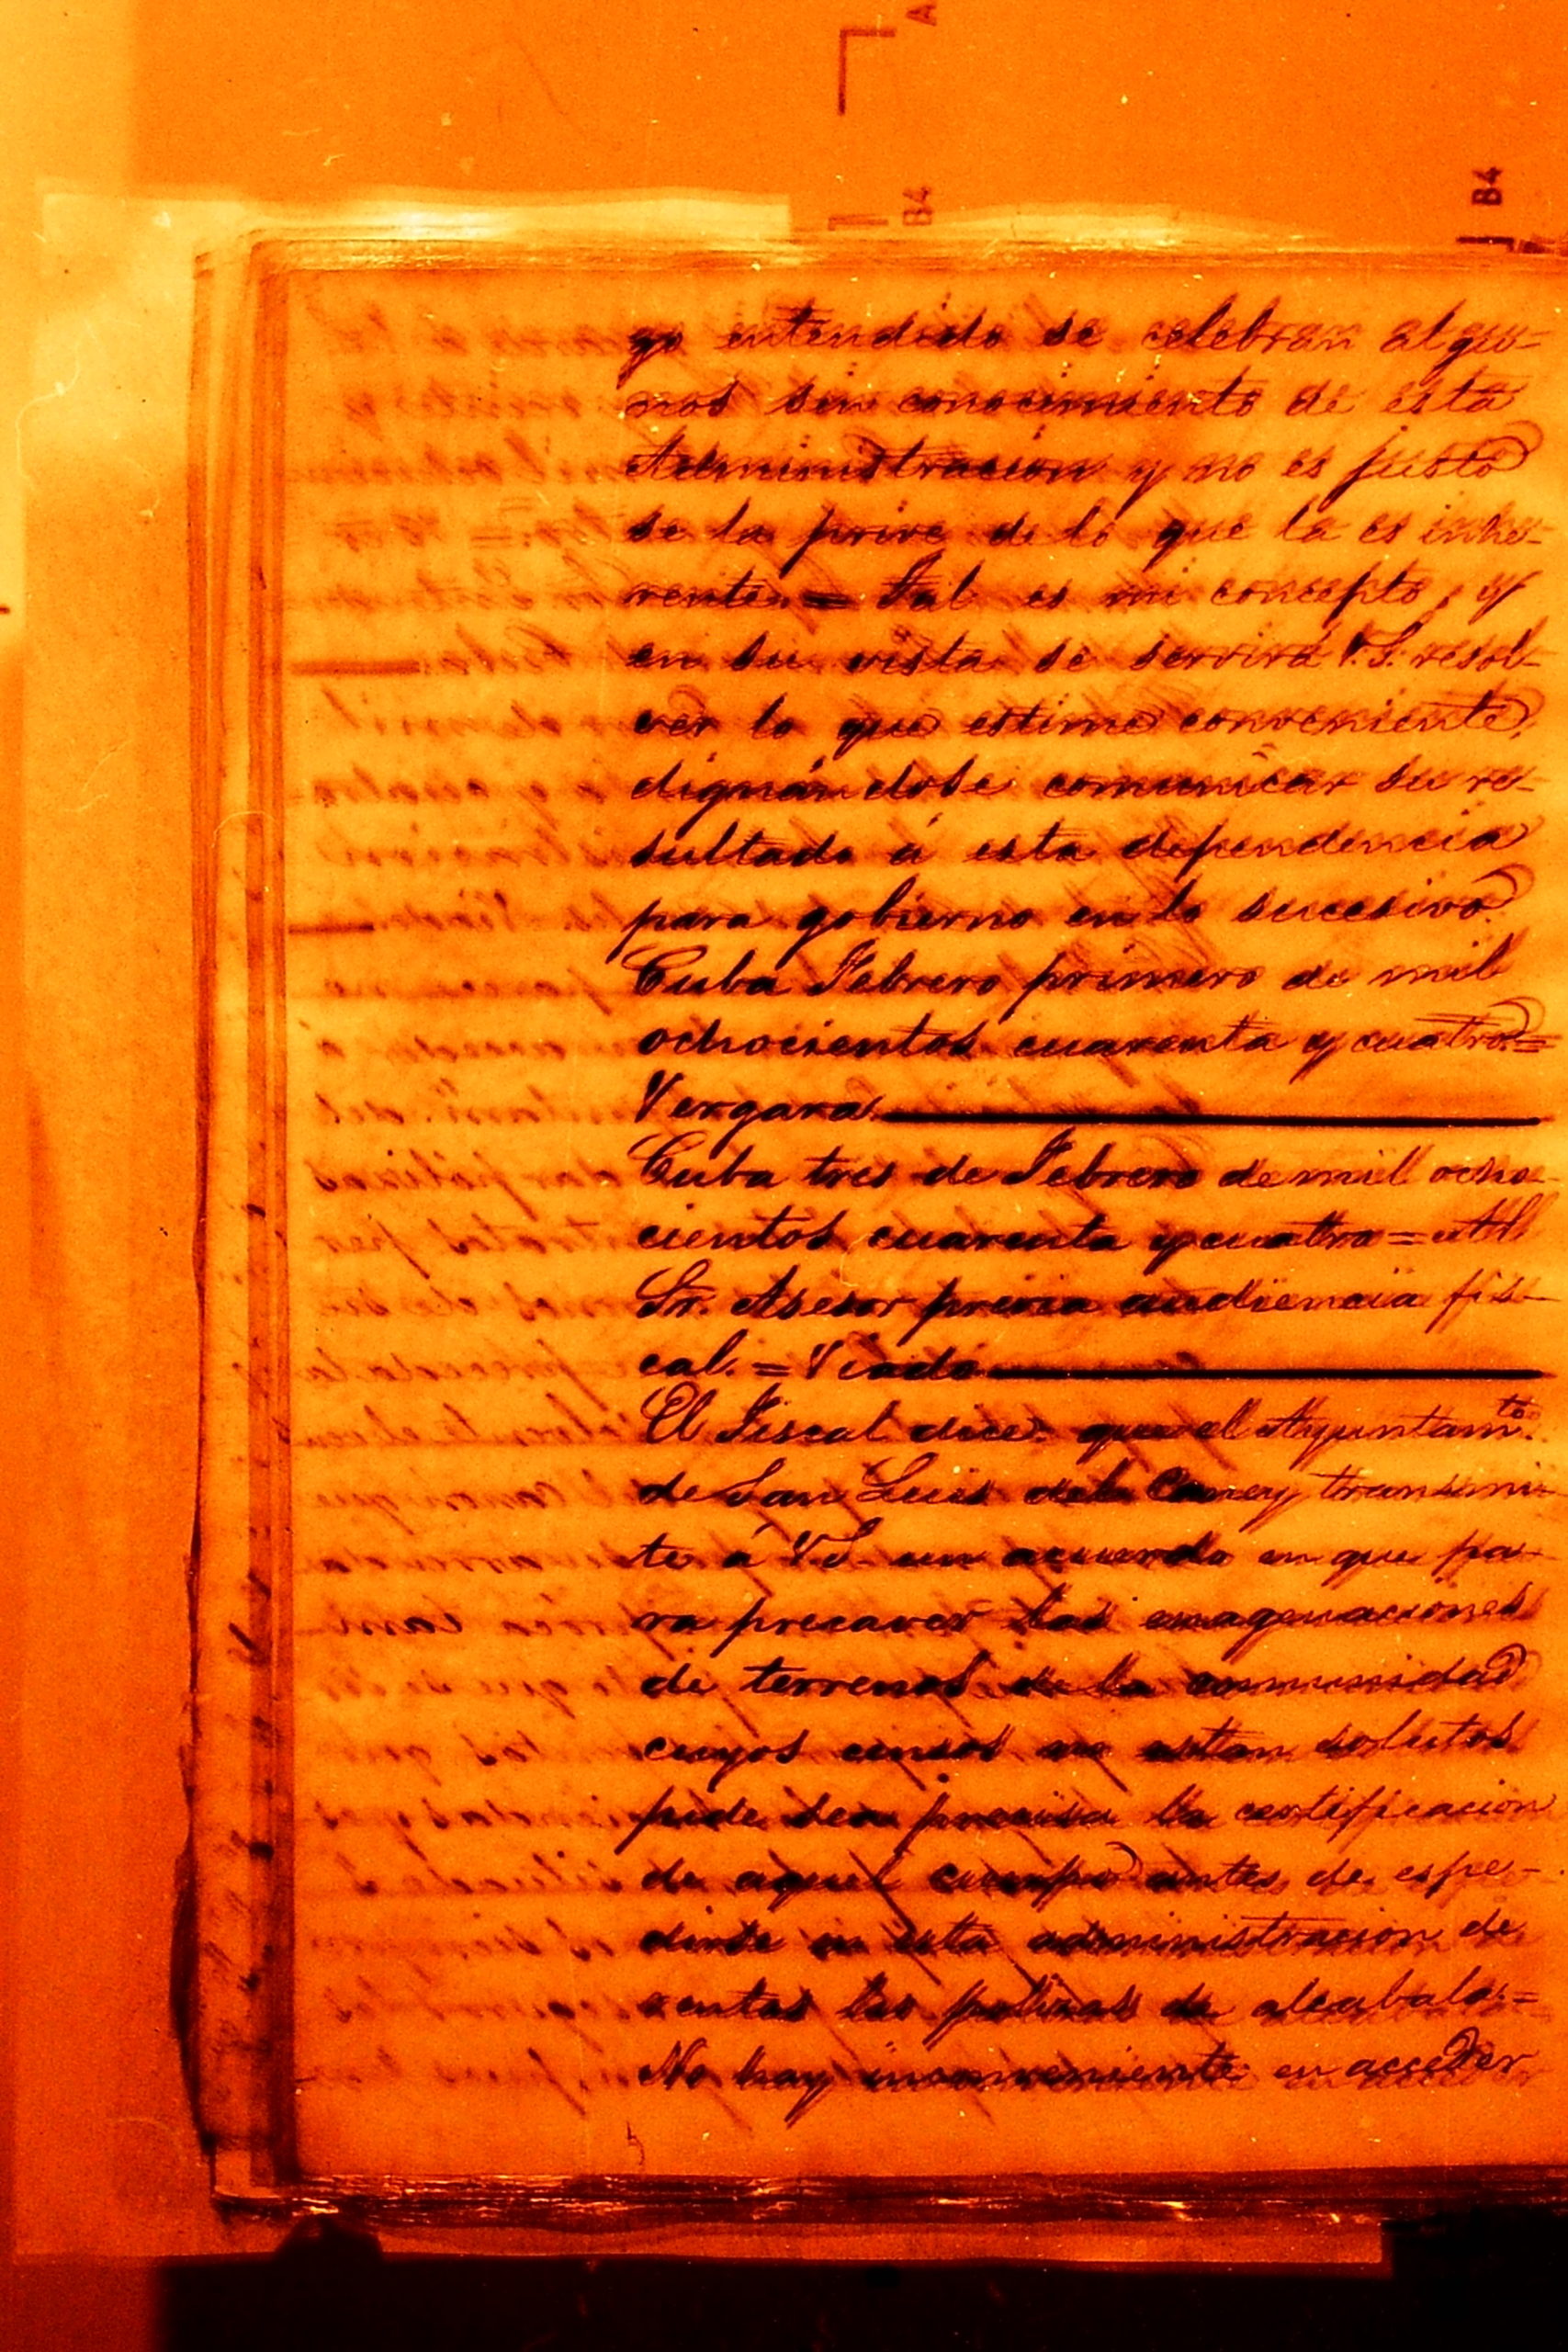 A
B4
B4
go entendido se celebran algu-
nos sin conocimiento de esta
Administracion y no es justo
se la prive de lo que la es inhe-
rente. = Tal es mi concepto, y
en su vista se servirá V.S. resol-
ver lo que estime conveniente,
dignándose comunicar su re-
sultado á esta dependencia
para gobierno en lo sucesivo.
Cuba Febrero primero de mil
ochocientos cuarenta y cuatro. =
Vergara.
Cuba tres de Febrero de mil ocho-
cientos cuarenta y cuatro = Al
Sr. Asesor previa audiencia fis-
cal. =
El Fiscal dice: que el Ayuntamto.
de San Luis del Caney transmi-
te á VS. un acuerdo en que pa-
ra precaver las enagenaciones
de terrenos de la comunidad
cuyos censos no estan solutos
pide sea precisa la certificacion
de aquel cuerpo antes de espe-
dirse en esta administracion de
rentas las polizas de alcabala. =
No hay inconveniente en acceder